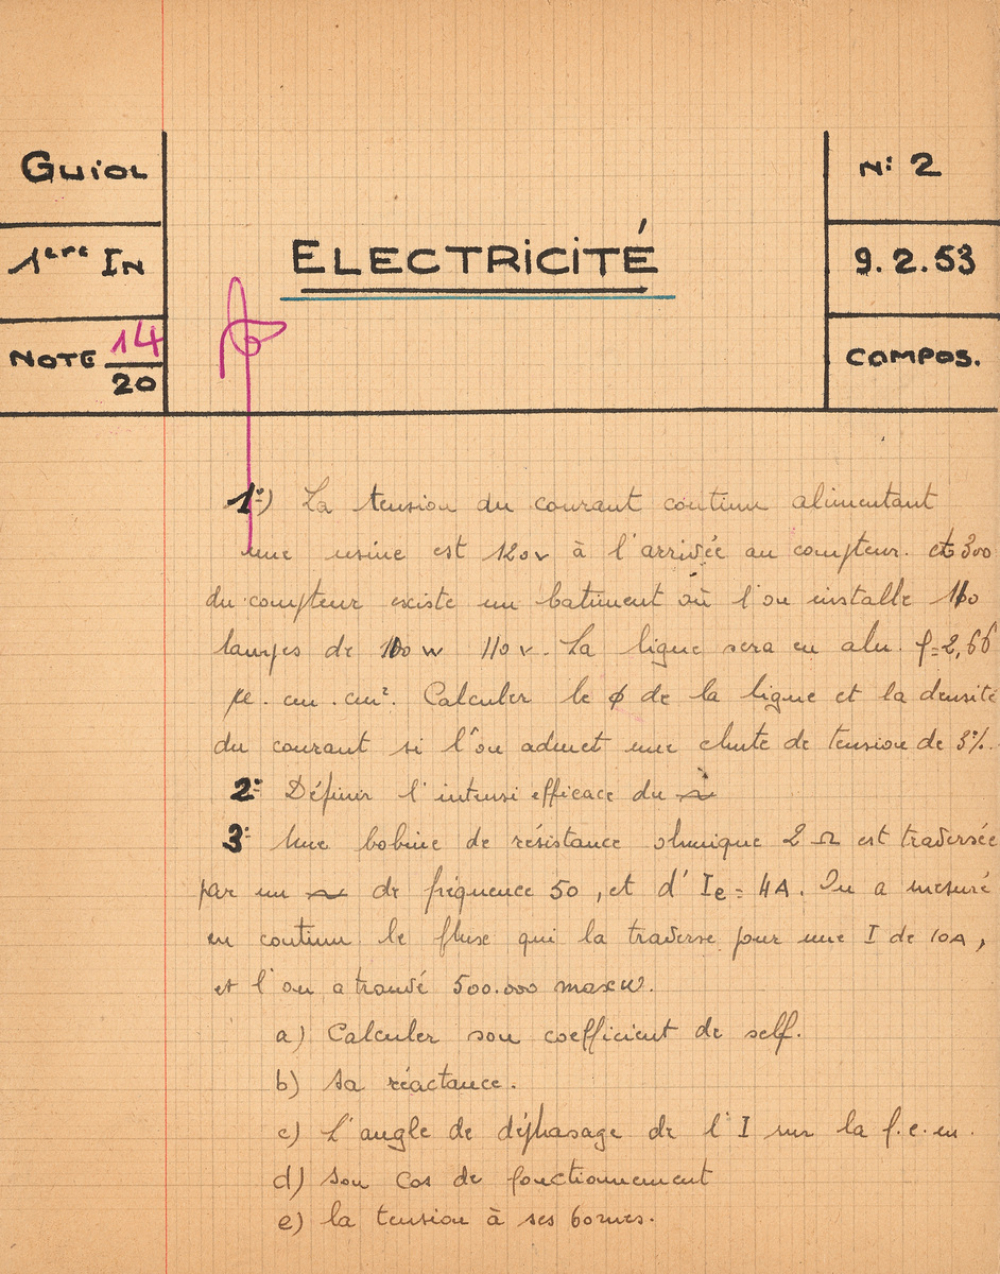 GUIOL
N: 2
1ère IN
ELECTRICITÉ
9.2.53
NOTE 14/20
COMPOS.
1°) La tension du courant continu alimentant
une usine est 120v à l'arrivée au compteur. et 300
du compteur existe un batiment où l'on installe 160
lampes de 100 w 110 v. La ligne sera en alu. ρ=2,66
μ. cm. cm². Calculer le ϕ de la ligne et la densité
du courant si l'on admet une chute de tension de 3%.
2° Définir l'intensi efficace du ~
3° Une bobine de résistance ohmique 2 Ω est traversée
par un ~ de fréquence 50, et d' Ie = 4A. On a mesuré
en continu le flux qui la traverse pour une I de 10A,
et l'on a trouvé 500.000 maxw.
a) Calculer son coefficient de self.
b) Sa réactance.
c) L'angle de déphasage de l'I sur la f.e.m.
d) Son Cos de fonctionnement
e) la tension à ses bornes.